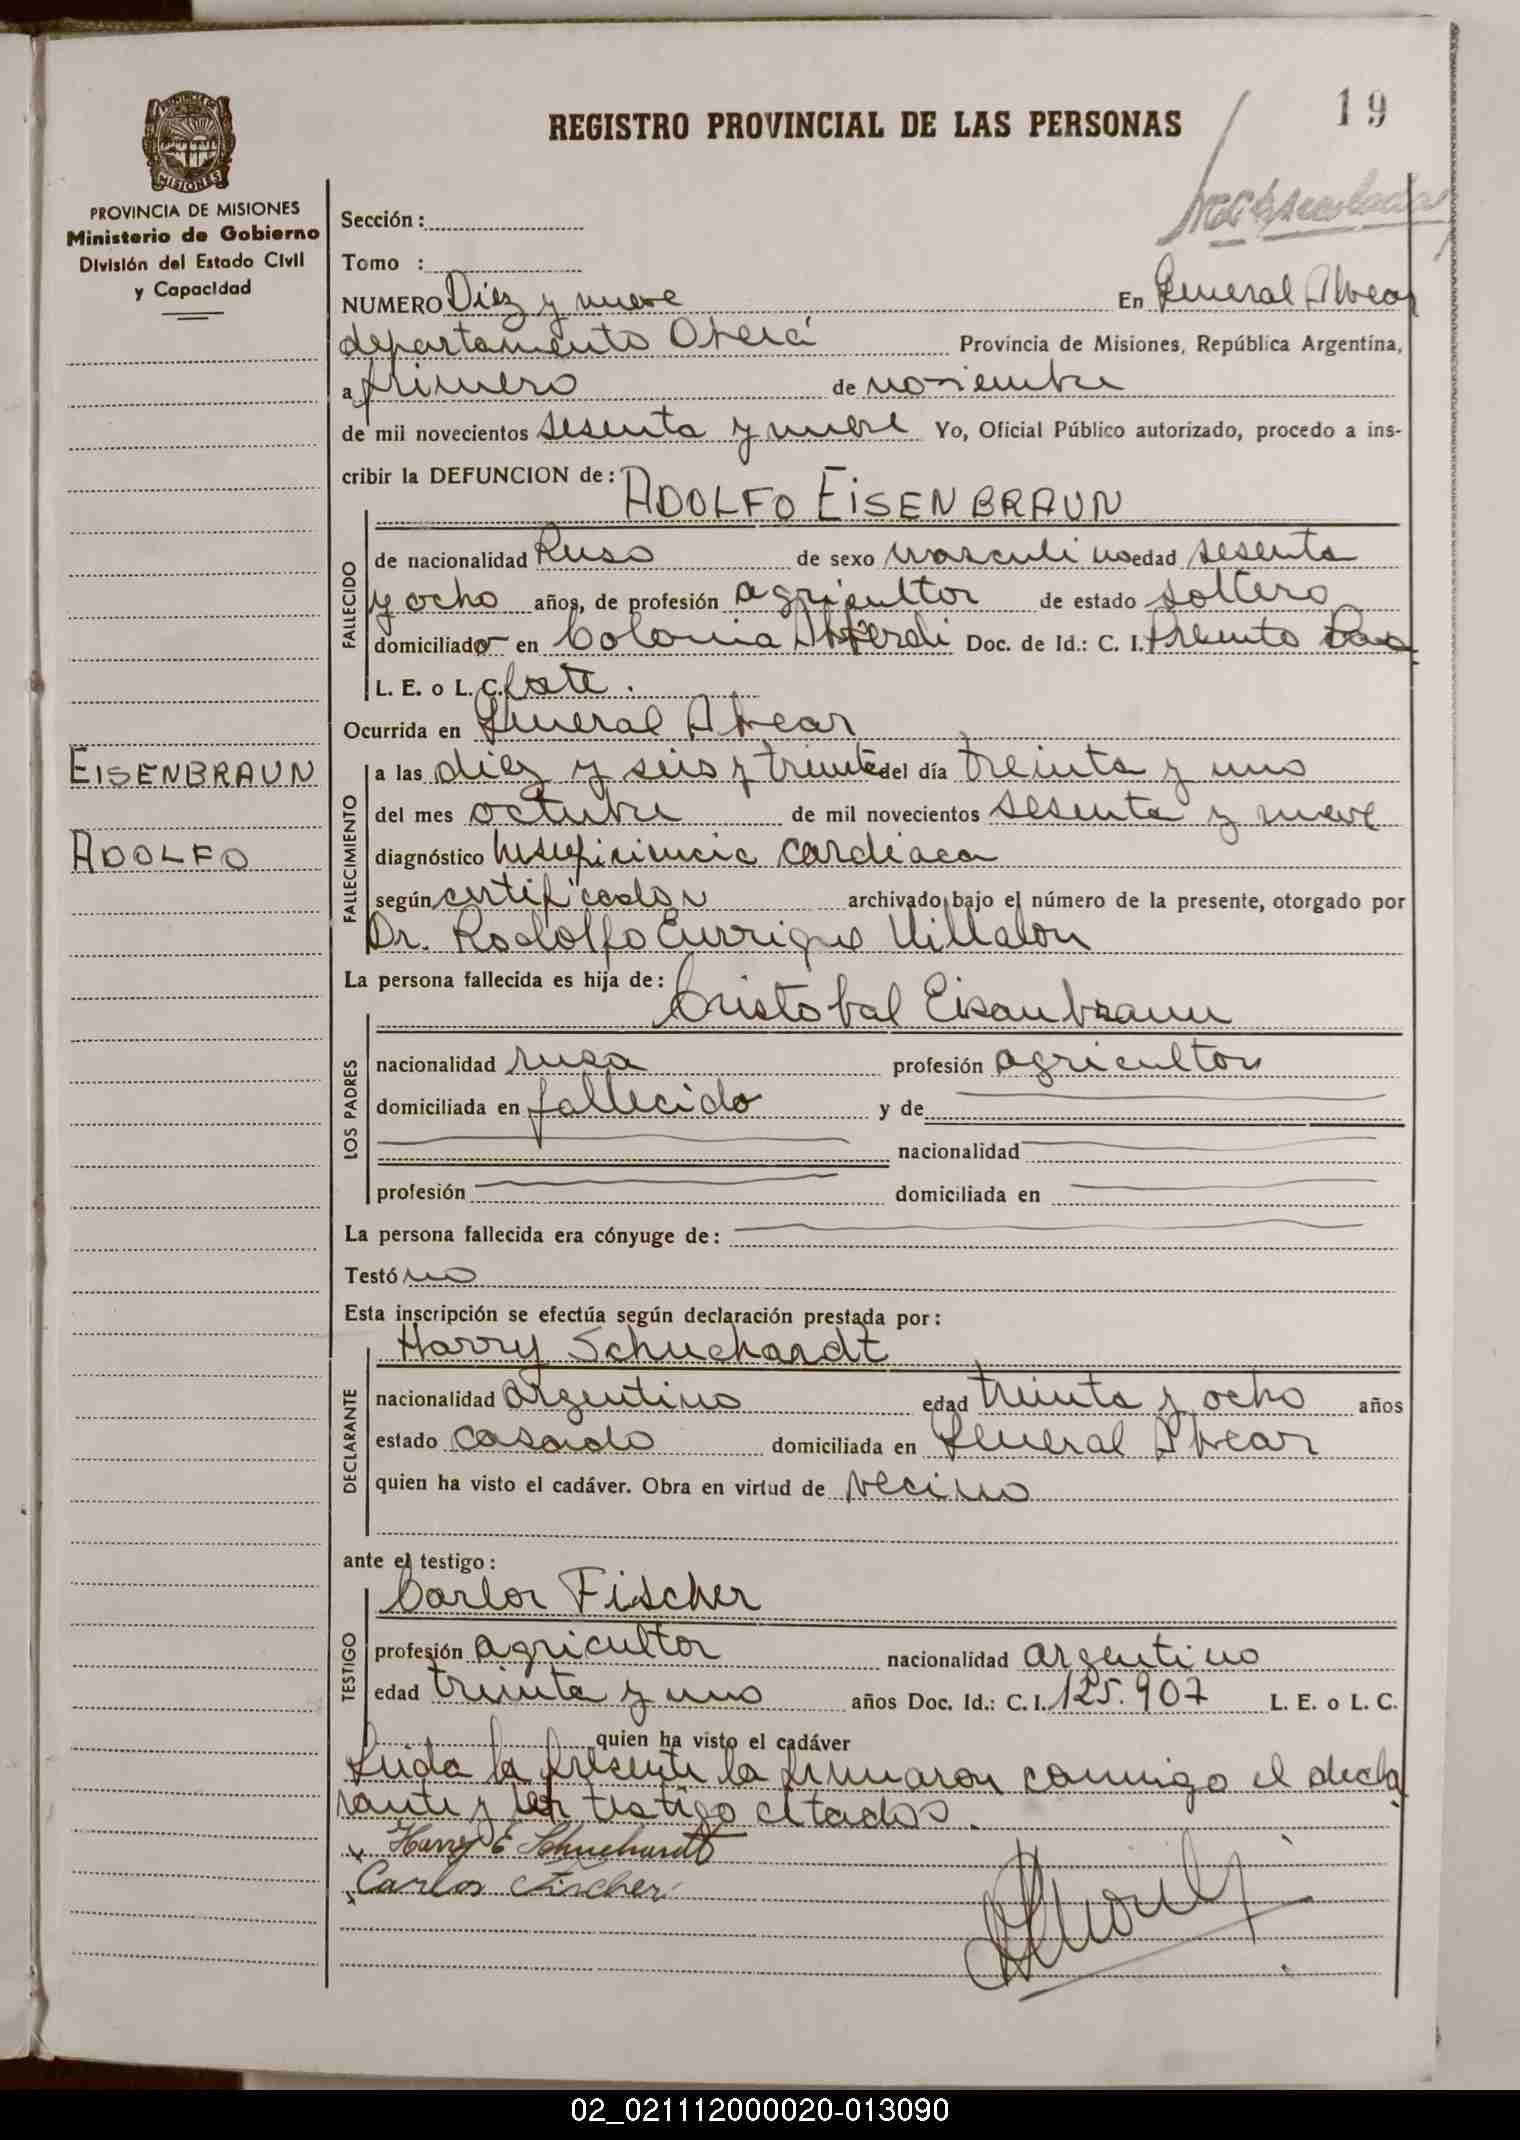 19
REGISTRO PROVINCIAL DE LAS PERSONAS
MISIONES
PROVINCIA DE MISIONES
Ministerio de Gobierno
División del Estado Civil
y Capacidad
Sección:
Tomo :
NUMERO Diez y nueve En General Alvear
departamento Oberá Provincia de Misiones, República Argentina,
a primero de noviembre
de mil novecientos sesenta y nueve Yo, Oficial Público autorizado, procedo a ins-
cribir la DEFUNCION de:
ADOLFO EISENBRAUN
FALLECIDO
de nacionalidad Ruso de sexo masculino edad sesenta
y ocho años, de profesión agricultor de estado soltero
domiciliado en Colonia Alberdi Doc. de Id.: C. I.
L. E. o L. C.
Ocurrida en General Alvear
EISENBRAUN
ADOLFO
FALLECIMIENTO
a las diez y seis y treinta del día treinta y uno
del mes octubre de mil novecientos sesenta y nueve
diagnóstico Insuficiencia cardiaca
según archivado bajo el número de la presente, otorgado por
Dr. Rodolfo Enrrique Villalon
La persona fallecida es hija de:
Cristobal Eisenbraun
LOS PADRES
nacionalidad rusa profesión agricultor
domiciliada en fallecido y de
nacionalidad
profesión domiciliada en
La persona fallecida era cónyuge de:
Testó no
Esta inscripción se efectúa según declaración prestada por:
Harry Schuchardt
DECLARANTE
nacionalidad argentino edad treinta y ocho años
estado casado domiciliada en General Alvear
quien ha visto el cadáver. Obra en virtud de vecino
ante el testigo:
Carlos Fischer
TESTIGO
profesión agricultor nacionalidad argentino
edad treinta y uno años Doc. Id.: C. I. 125.907 L. E. o L. C.
quien ha visto el cadáver
Leida la presente la firmaron conmigo el decla
rante y testigo citados.
Harry E Schuchardt
Carlos Fischer
02_021112000020-013090